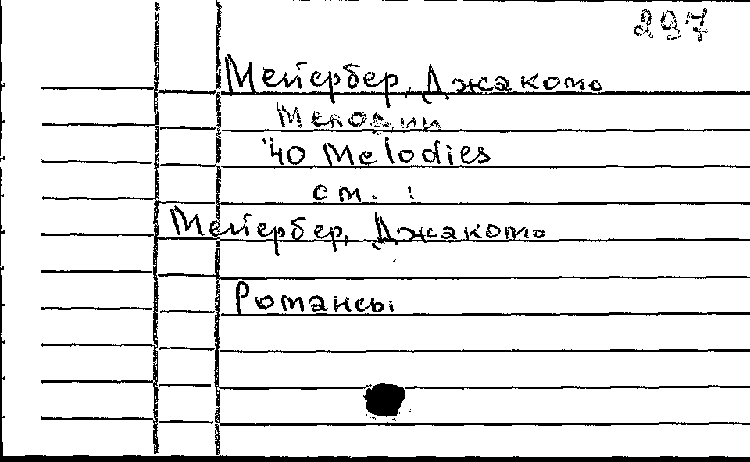 297
Мейербер, Джакомо
Мелодии
40 Melodies
см. :
Мейербер, Джакомо
Романсы